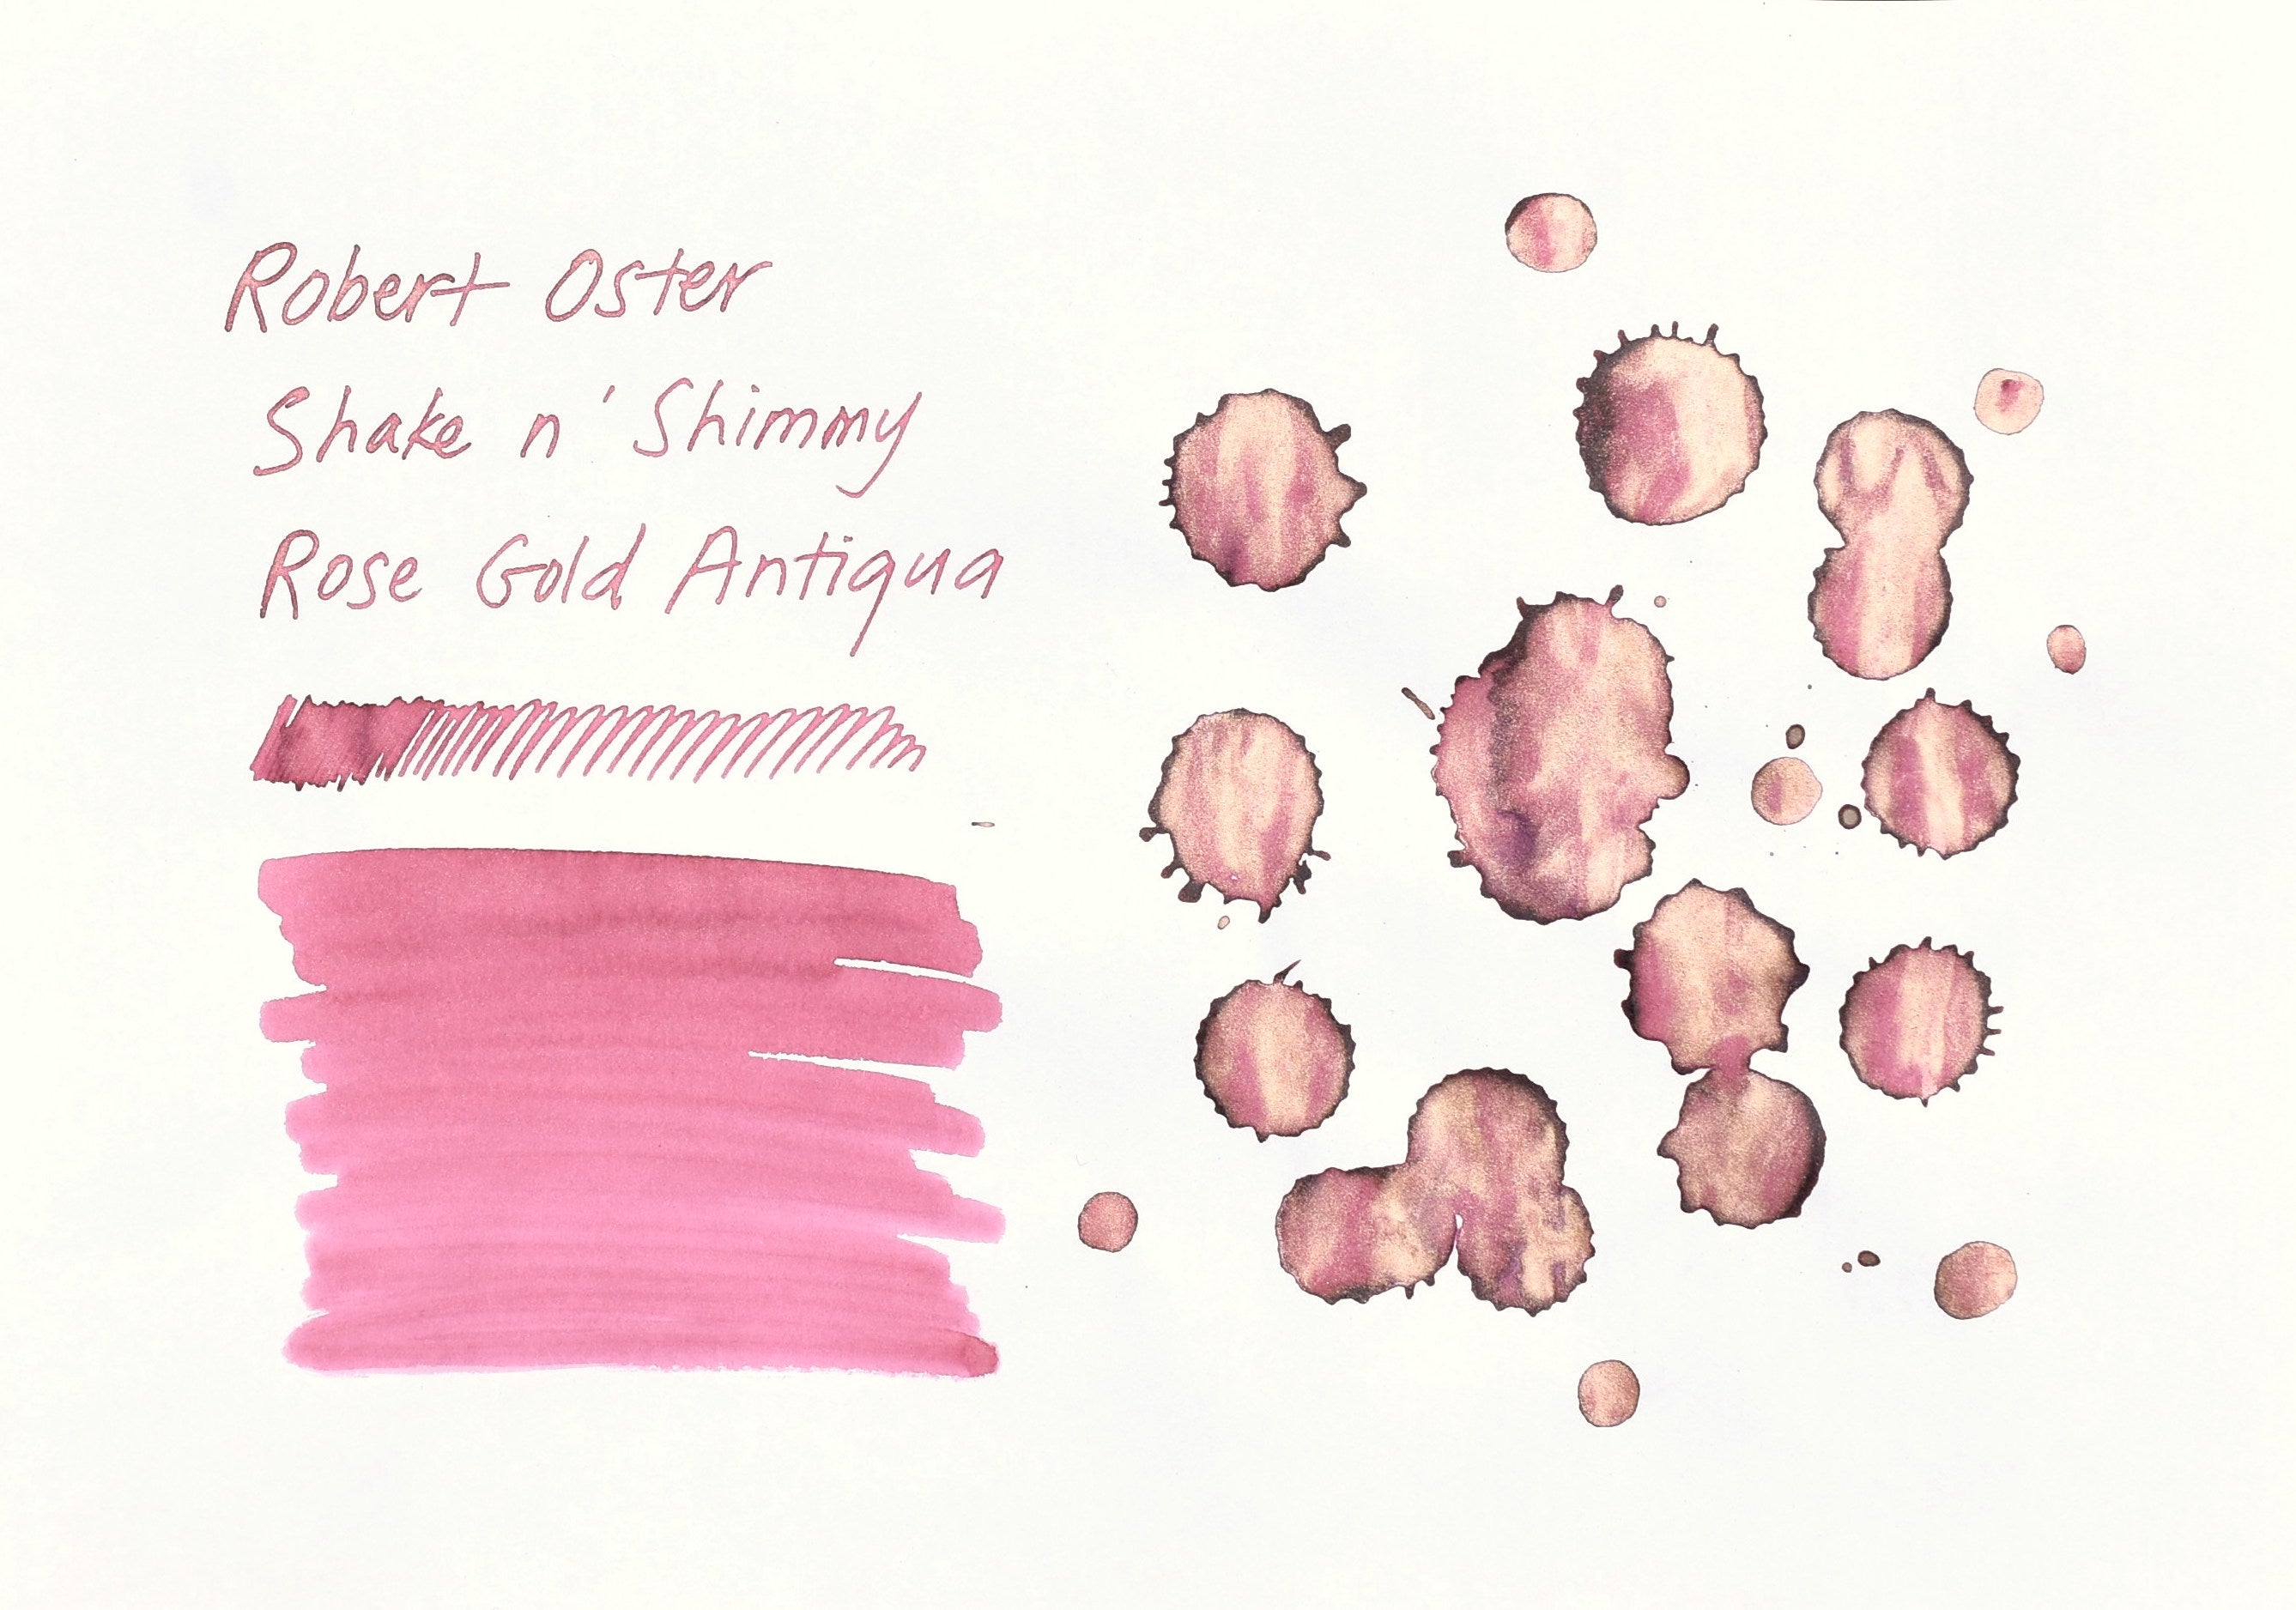 Robert Oster
Shake n' Shimmy
Rose Gold Antiqua